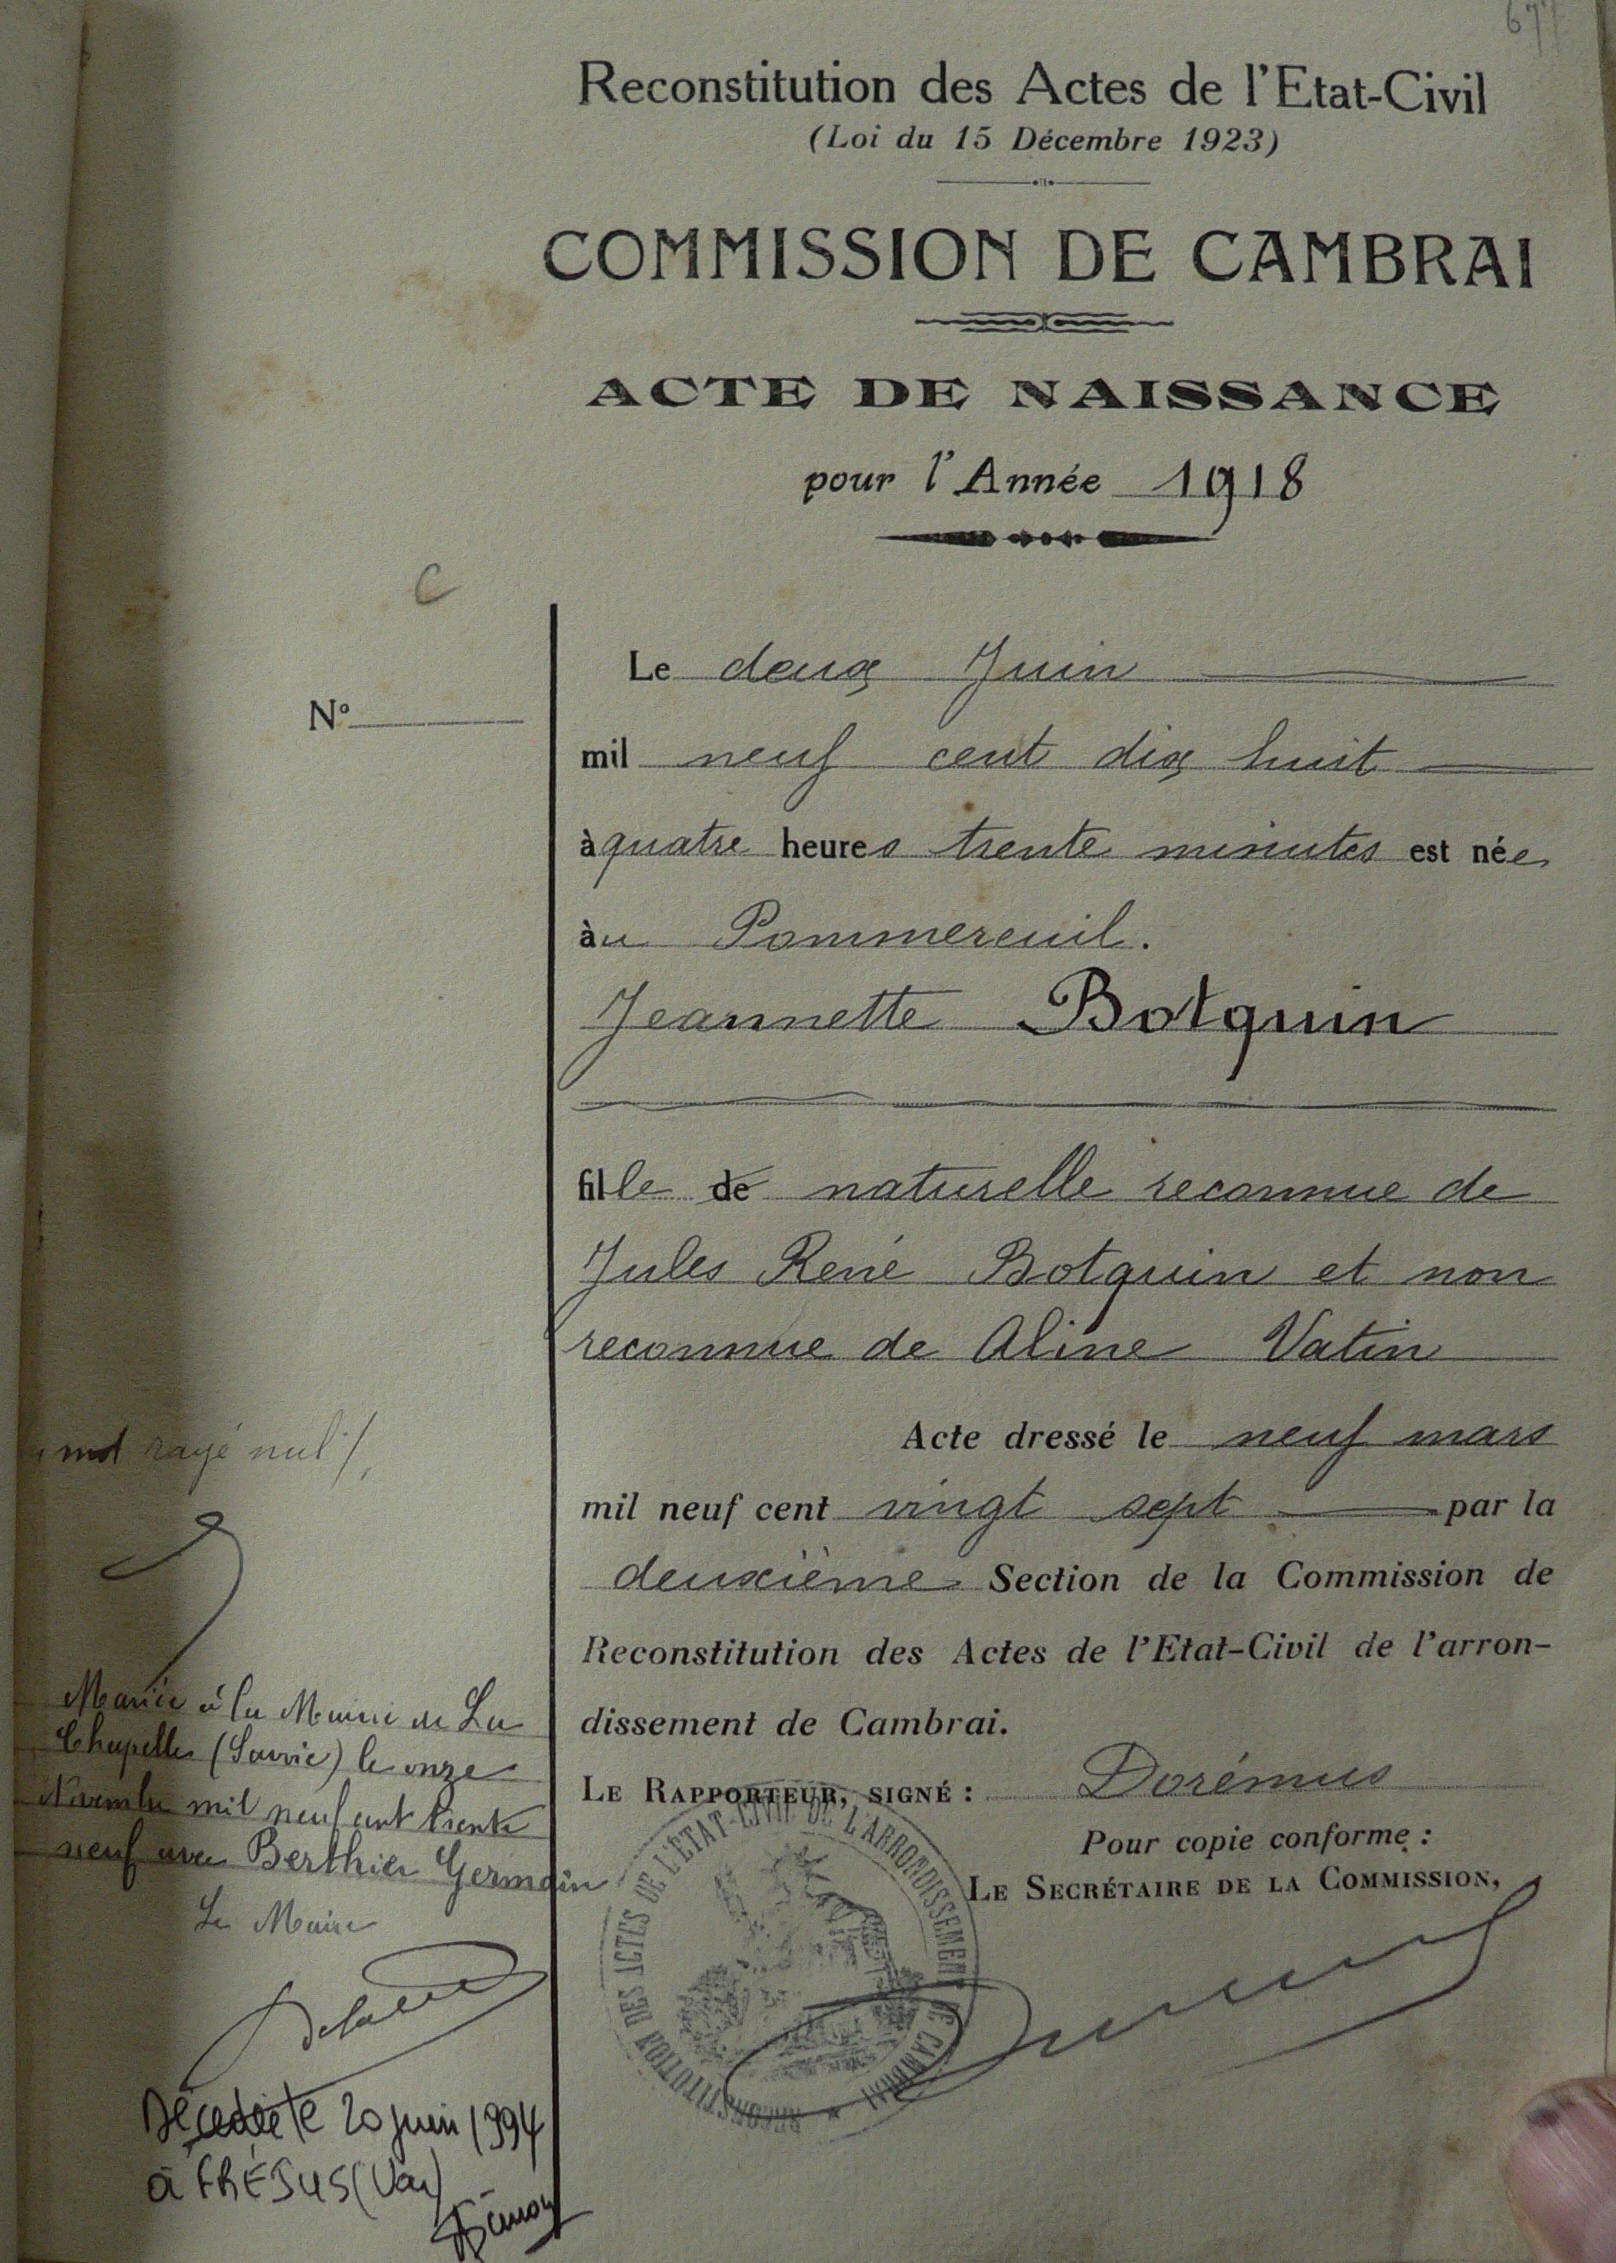 677
Reconstitution des Actes de l'Etat-Civil
(Loi du 15 Décembre 1923)
COMMISSION DE CAMBRAI
ACTE DE NAISSANCE
pour l'Année 1918
C
N°
Le deux Juin
mil neuf cent dix huit
à quatre heures trente minutes est née
àu Pommereuil.
Jeannette Botquin
fille de naturelle reconnue de
Jules René Botquin et non
reconnue de Aline Vatin
Acte dressé le neuf mars
mil neuf cent vingt sept par la
deuxième Section de la Commission de
Reconstitution des Actes de l'Etat-Civil de l'arron-
dissement de Cambrai.
LE RAPPORTEUR, SIGNÉ : Dorémus
Pour copie conforme :
LE SECRÉTAIRE DE LA COMMISSION,
RECONSTITUTION DES ACTES DE L'ÉTAT-CIVIL DE L'ARRONDISSEMENT DE CAMBRAI
mot rayé nul
Mariée à la Mairie de La
Chapelle (Savoie) le onze
Novembre mil neuf cent trente
neuf avec Berthier Germain
Le Maire
Décédée le 20 juin 1994
à FRÉJUS (Var)